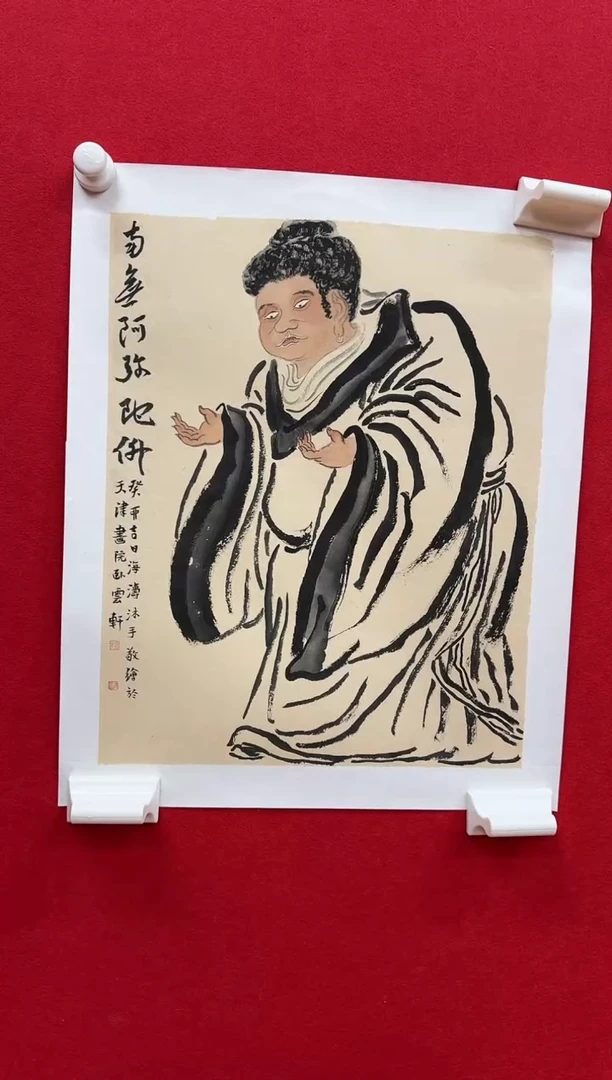 南無阿弥陀佛
癸卯吉日海濤沐手敬繪於
天津畫院臥雲軒